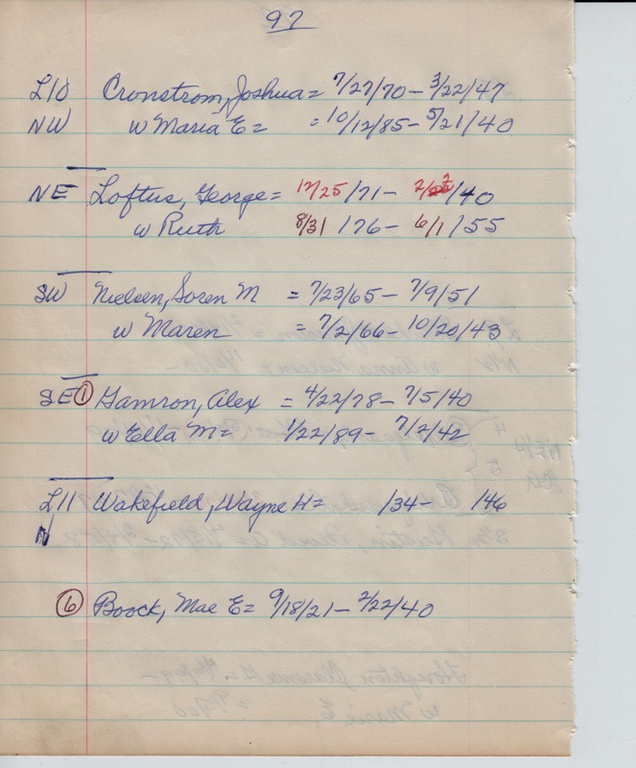 97
L10 Cronstrom, Joshua = 7/27/70 - 3/22/47
NW w Maria E = = 10/12/85 - 5/21/40
NE Loftus, George = 12/25/71 - 2/2/40
w Ruth 8/31/76 - 6/1/55
SW Nielsen, Soren M = 7/23/65 - 7/9/51
w Maren = 7/2/66 - 10/20/43
SE 1 Gamron, Alex = 4/22/78 - 7/5/40
w Ella M = 1/22/89 - 7/2/42
L11 Wakefield, Wayne H = /34 - /46
N
6 Boock, Mae E = 9/18/21 - 2/22/40